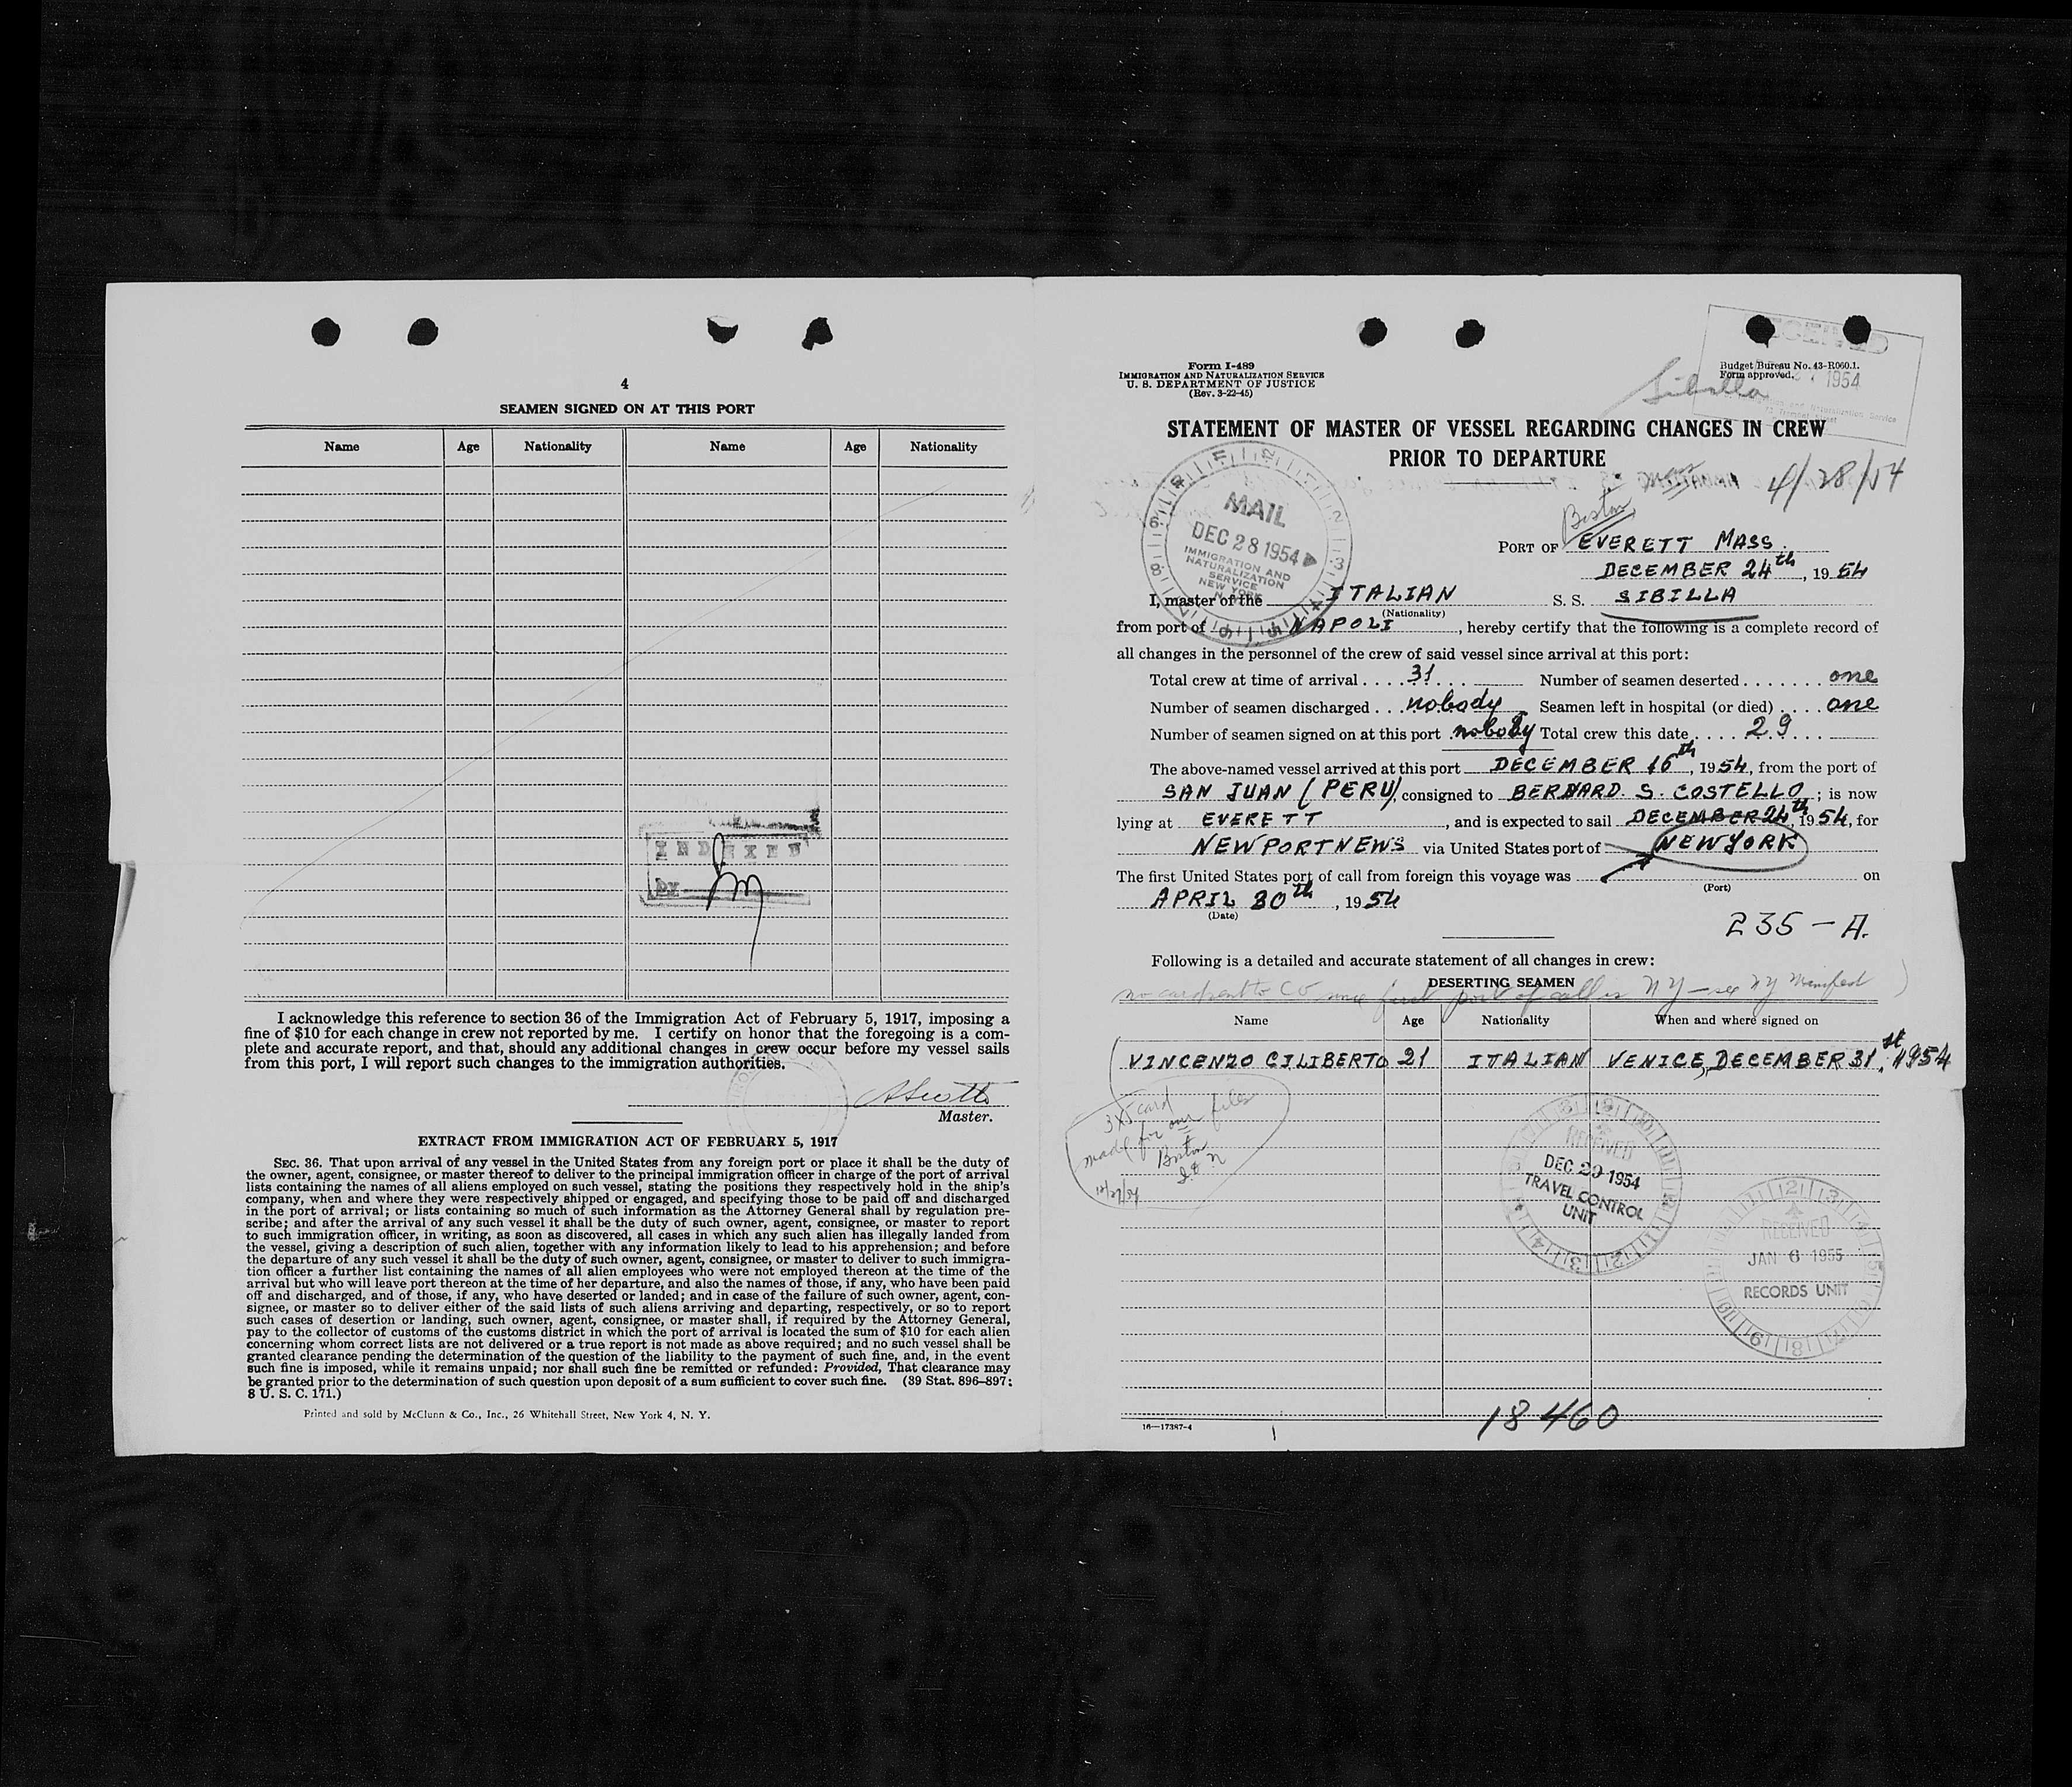 4
SEAMEN SIGNED ON AT THIS PORT
Name Age Nationality Name Age Nationality
INDEXED
by
I acknowledge this reference to section 36 of the Immigration Act of February 5, 1917, imposing a
fine of $10 for each change in crew not reported by me. I certify on honor that the foregoing is a com-
plete and accurate report, and that, should any additional changes in crew occur before my vessel sails
from this port, I will report such changes to the immigration authorities.
Master.
EXTRACT FROM IMMIGRATION ACT OF FEBRUARY 5, 1917
SEC. 36. That upon arrival of any vessel in the United States from any foreign port or place it shall be the duty of
the owner, agent, consignee, or master thereof to deliver to the principal immigration officer in charge of the port of arrival
lists containing the names of all aliens employed on such vessel, stating the positions they respectively hold in the ship's
company, when and where they were respectively shipped or engaged, and specifying those to be paid off and discharged
in the port of arrival; or lists containing so much of such information as the Attorney General shall by regulation pre-
scribe; and after the arrival of any such vessel it shall be the duty of such owner, agent, consignee, or master to report
to such immigration officer, in writing, as soon as discovered, all cases in which any such alien has illegally landed from
the vessel, giving a description of such alien, together with any information likely to lead to his apprehension; and before
the departure of any such vessel it shall be the duty of such owner, agent, consignee, or master to deliver to such immigra-
tion officer a further list containing the names of all alien employees who were not employed thereon at the time of the
arrival but who will leave port thereon at the time of her departure, and also the names of those, if any, who have been paid
off and discharged, and of those, if any, who have deserted or landed; and in case of the failure of such owner, agent, con-
signee, or master so to deliver either of the said lists of such aliens arriving and departing, respectively, or so to report
such cases of desertion or landing, such owner, agent, consignee, or master shall, if required by the Attorney General,
pay to the collector of customs of the customs district in which the port of arrival is located the sum of $10 for each alien
concerning whom correct lists are not delivered or a true report is not made as above required; and no such vessel shall be
granted clearance pending the determination of the question of the liability to the payment of such fine, and, in the event
such fine is imposed, while it remains unpaid; nor shall such fine be remitted or refunded: Provided, That clearance may
be granted prior to the determination of such question upon deposit of a sum sufficient to cover such fine. (39 Stat. 896-897;
8 U. S. C. 171.)
Printed and sold by McClunn & Co., Inc., 26 Whitehall Street, New York 4, N. Y.
Form I-489
IMMIGRATION AND NATURALIZATION SERVICE
U. S. DEPARTMENT OF JUSTICE
(Rev. 3-22-45)
Budget Bureau No. 43-R060.1.
Form approved.
RECEIVED
1954
Sibilla
STATEMENT OF MASTER OF VESSEL REGARDING CHANGES IN CREW
PRIOR TO DEPARTURE
4/28/54
MAIL
DEC 28 1954
IMMIGRATION AND
NATURALIZATION
SERVICE
NEW YORK
Boston
PORT OF EVERETT MASS.
DECEMBER 24th, 1954
I, master of the ITALIAN S. S. SIBILLA
(Nationality)
from port of NAPOLI, hereby certify that the following is a complete record of
all changes in the personnel of the crew of said vessel since arrival at this port:
Total crew at time of arrival . . . . 31 . . . Number of seamen deserted . . . . . . . one
Number of seamen discharged . . . nobody Seamen left in hospital (or died) . . . . one
Number of seamen signed on at this port . nobody Total crew this date . . . . 29 . . .
The above-named vessel arrived at this port DECEMBER 16th, 1954, from the port of
SAN JUAN (PERU), consigned to BERNARD. S. COSTELLO; is now
lying at EVERETT, and is expected to sail DECEMBER 24th, 1954, for
NEWPORT NEWS via United States port of NEW YORK
The first United States port of call from foreign this voyage was on
(Port)
APRIL 30th, 1954
(Date)
235 - A.
Following is a detailed and accurate statement of all changes in crew:
DESERTING SEAMEN
no card sent to CO since first port of call is NY - see NY Manifest
Name Age Nationality When and where signed on
VINCENZO CILIBERTO 21 ITALIAN VENICE, DECEMBER 31st, 1954
3x5 card
made for our files
Boston
12/27/54
RECEIVED
DEC 29 1954
TRAVEL CONTROL
UNIT
RECEIVED
JAN 6 1955
RECORDS UNIT
18460
16-17387-4